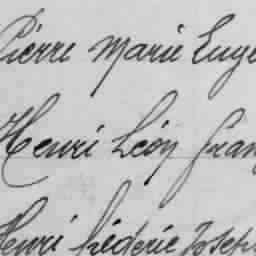 Pierre Marie Euge
Henri Léon Fran
Henri Fréderic Joseph